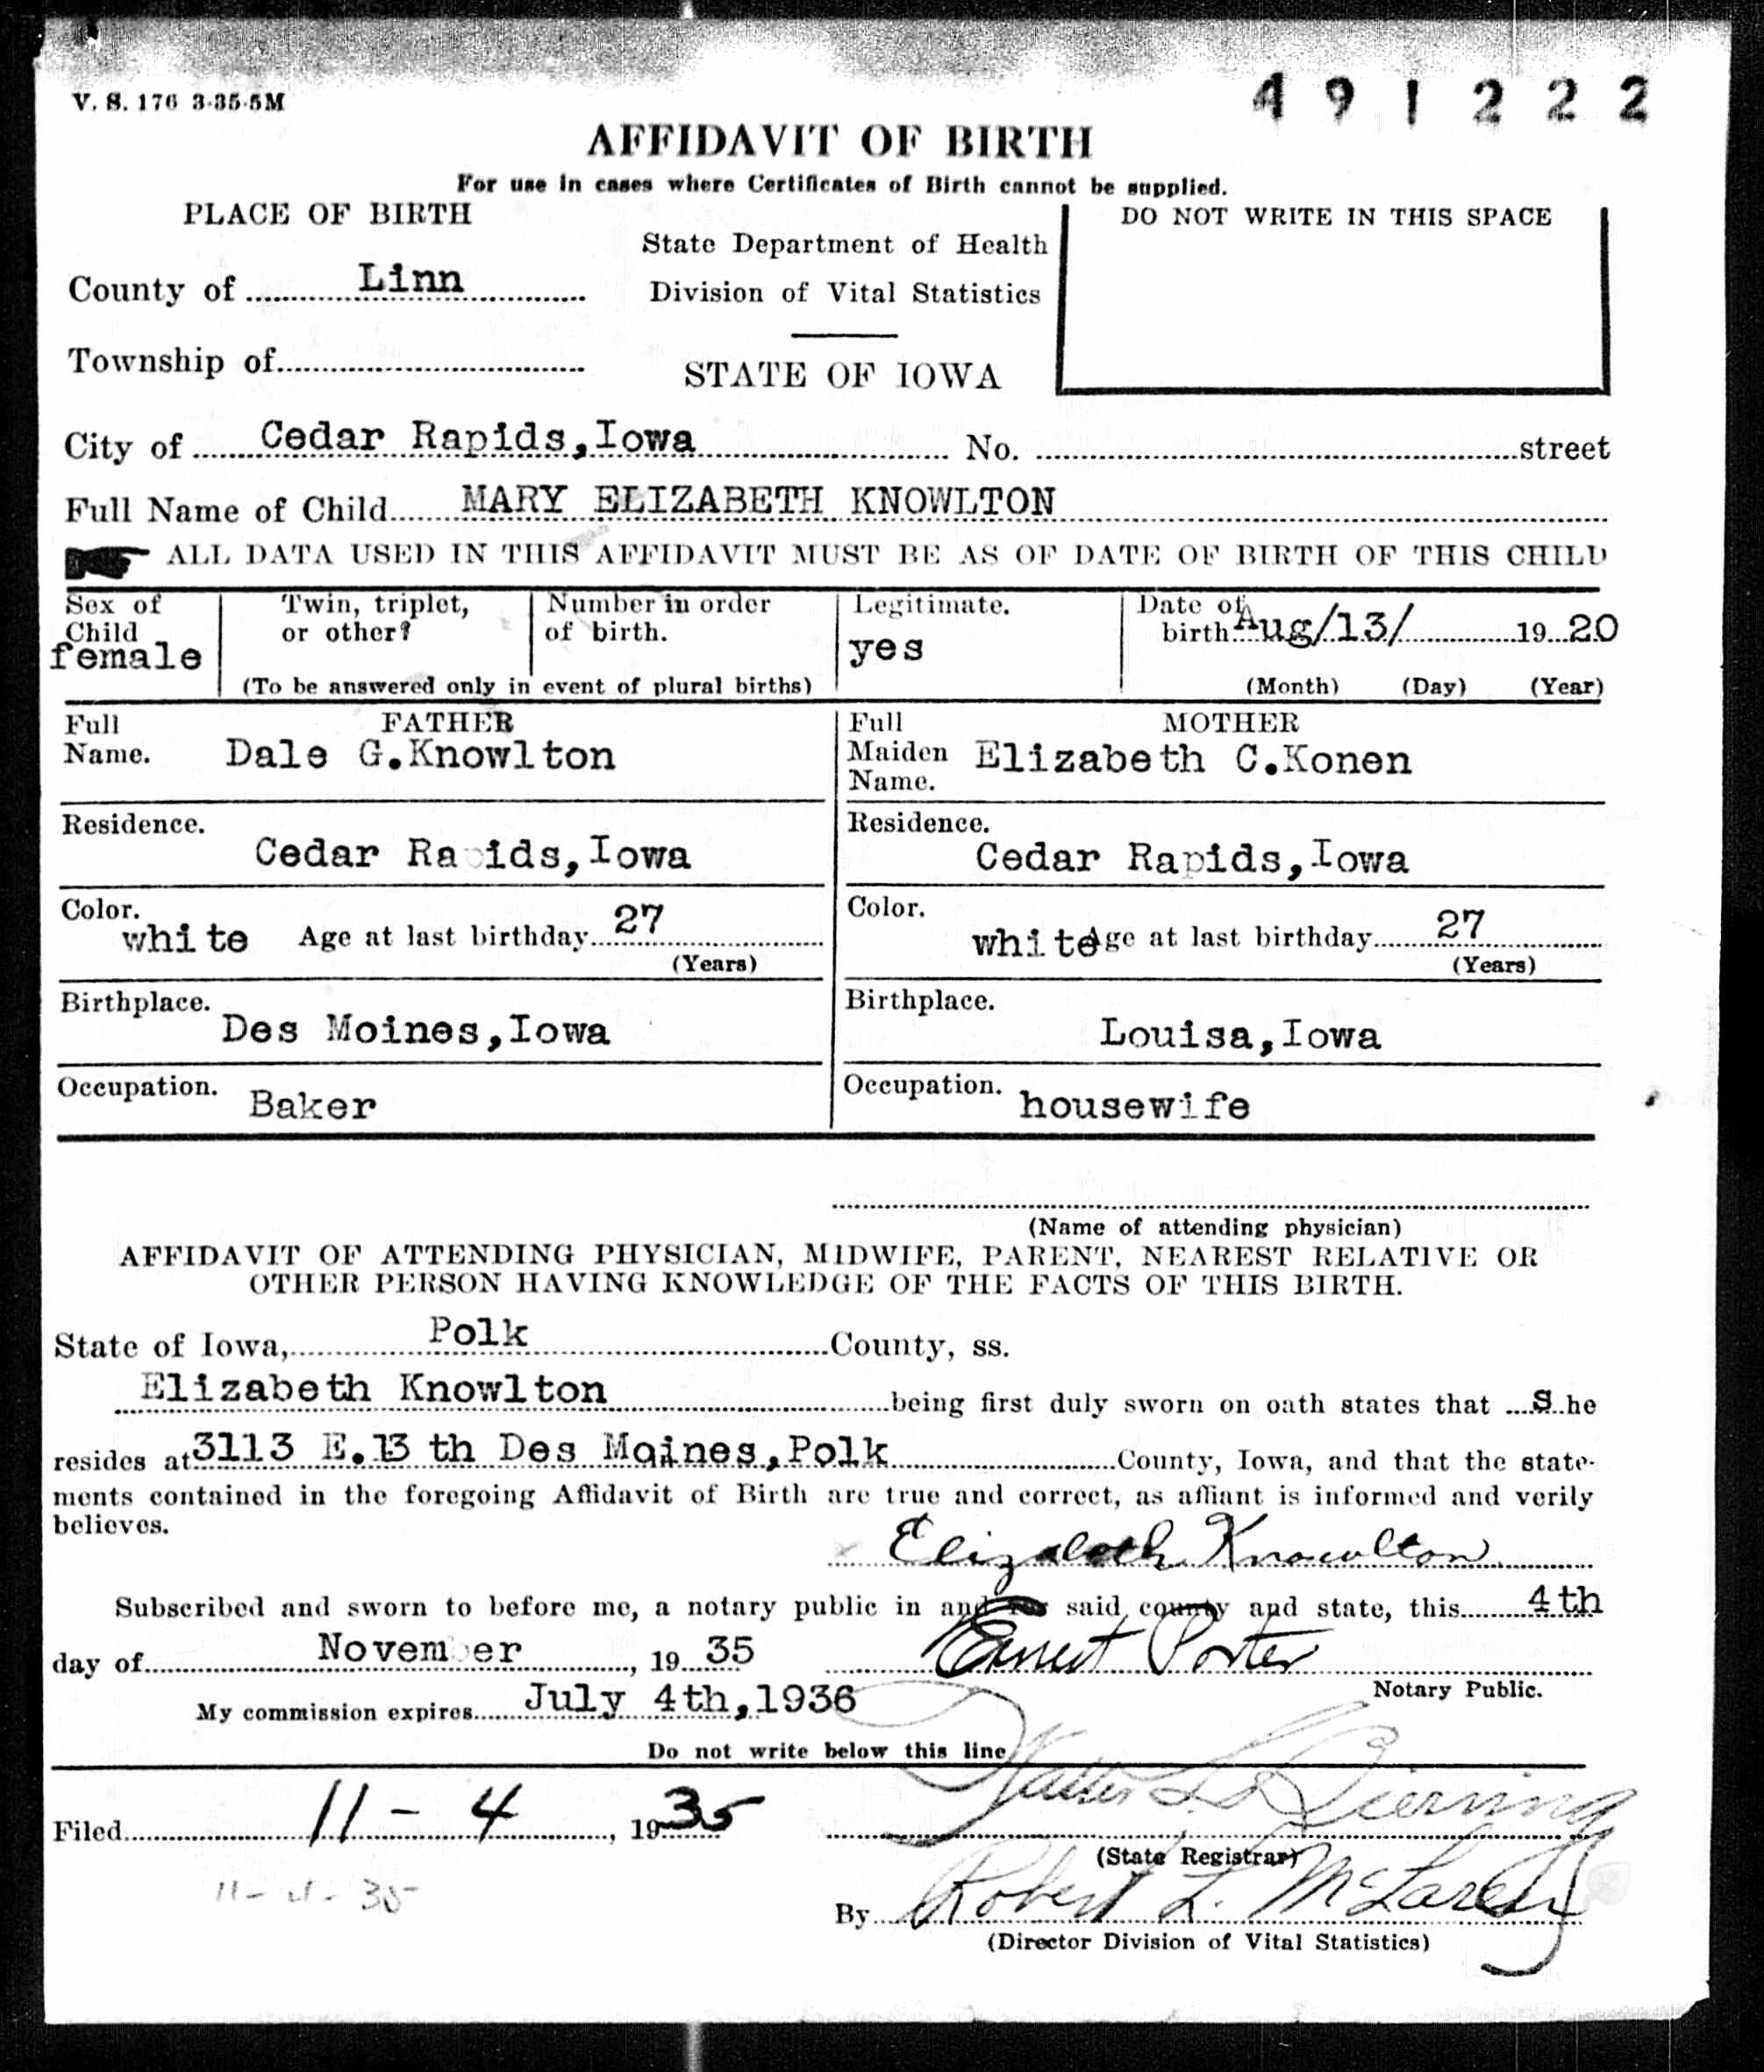 V. S. 176 3-35-5M
491222
AFFIDAVIT OF BIRTH
For use in cases where Certificates of Birth cannot be supplied.
PLACE OF BIRTH
DO NOT WRITE IN THIS SPACE
State Department of Health
County of Linn
Division of Vital Statistics
Township of
STATE OF IOWA
City of Cedar Rapids, Iowa No. street
Full Name of Child MARY ELIZABETH KNOWLTON
ALL DATA USED IN THIS AFFIDAVIT MUST BE AS OF DATE OF BIRTH OF THIS CHILD
Sex of Child female
Twin, triplet, or other?
Number in order of birth.
(To be answered only in event of plural births)
Legitimate. yes
Date of birth Aug/13/ 1920
(Month) (Day) (Year)
FATHER
Full Name. Dale G.Knowlton
Residence. Cedar Ra ids,Iowa
Color. white Age at last birthday 27
(Years)
Birthplace. Des Moines,Iowa
Occupation. Baker
MOTHER
Full Maiden Name. Elizabeth C.Konen
Residence. Cedar Rapids,Iowa
Color. white Age at last birthday 27
(Years)
Birthplace. Louisa,Iowa
Occupation. housewife
(Name of attending physician)
AFFIDAVIT OF ATTENDING PHYSICIAN, MIDWIFE, PARENT, NEAREST RELATIVE OR
OTHER PERSON HAVING KNOWLEDGE OF THE FACTS OF THIS BIRTH.
State of Iowa, Polk County, ss.
Elizabeth Knowlton being first duly sworn on oath states that S he
resides at 3113 E.13 th Des Moines,Polk County, Iowa, and that the state-
ments contained in the foregoing Affidavit of Birth are true and correct, as affiant is informed and verily
believes.
Elizabeth Knowlton
Subscribed and sworn to before me, a notary public in and for said county and state, this 4th
day of Novem er, 1935 Ernest Porter
Notary Public.
My commission expires July 4th,1936
Do not write below this line
Filed 11-4, 1935 Walter L. Bierring
(State Registrar)
11-4-35
By Robert L. McLaren
(Director Division of Vital Statistics)